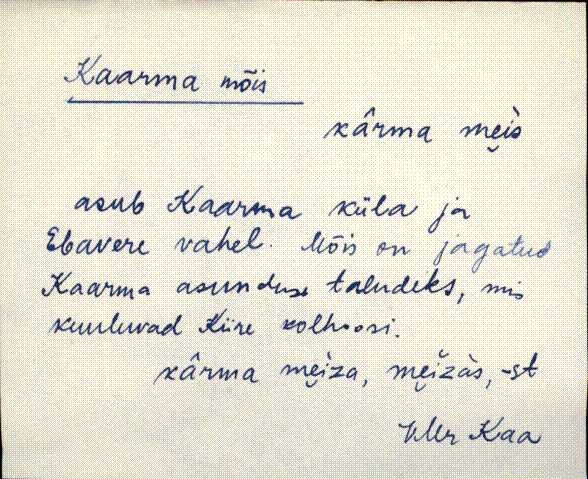 Kaarma mõis
kârma me̬i̮s
asub Kaarma küla ja
Ebavere vahel. Mõis on jagatud
Kaarma asunduse taludeks, mis
kuuluvad Kiire kolhoosi.
kârma me̬i̮za, me̬i̮zàs, -st
VMr Kaa